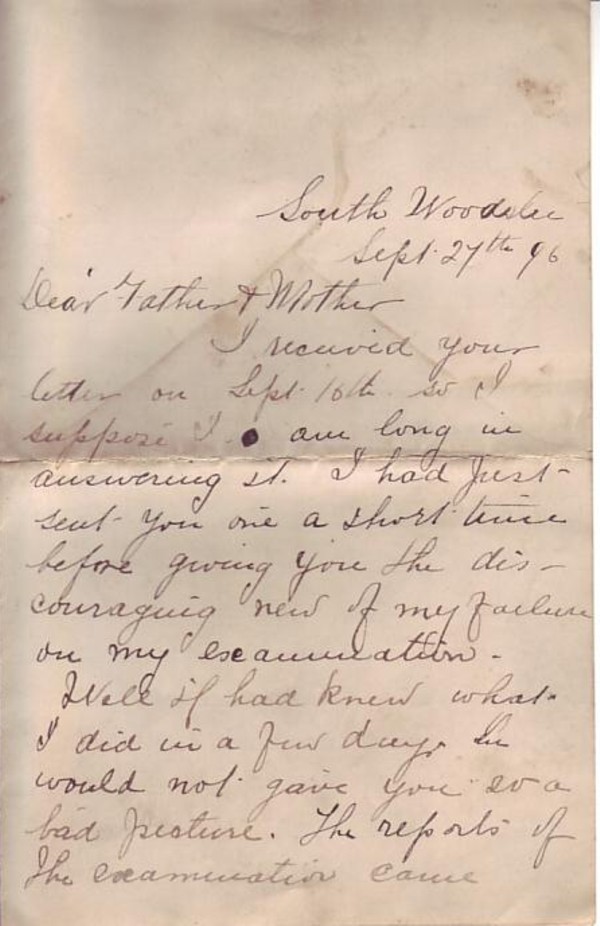 South Woodslee
Sept. 27th 96
Dear Father & Mother
I received your
letter on Sept. 16th so I
suppose I am long in
answering it. I had just
sent you one a short time
before giving you the dis-
couraging new of my failure
on my examination.
Well if had knew what
I did in a few days
would not gave you so a
bad picture. The reports of
the examination came